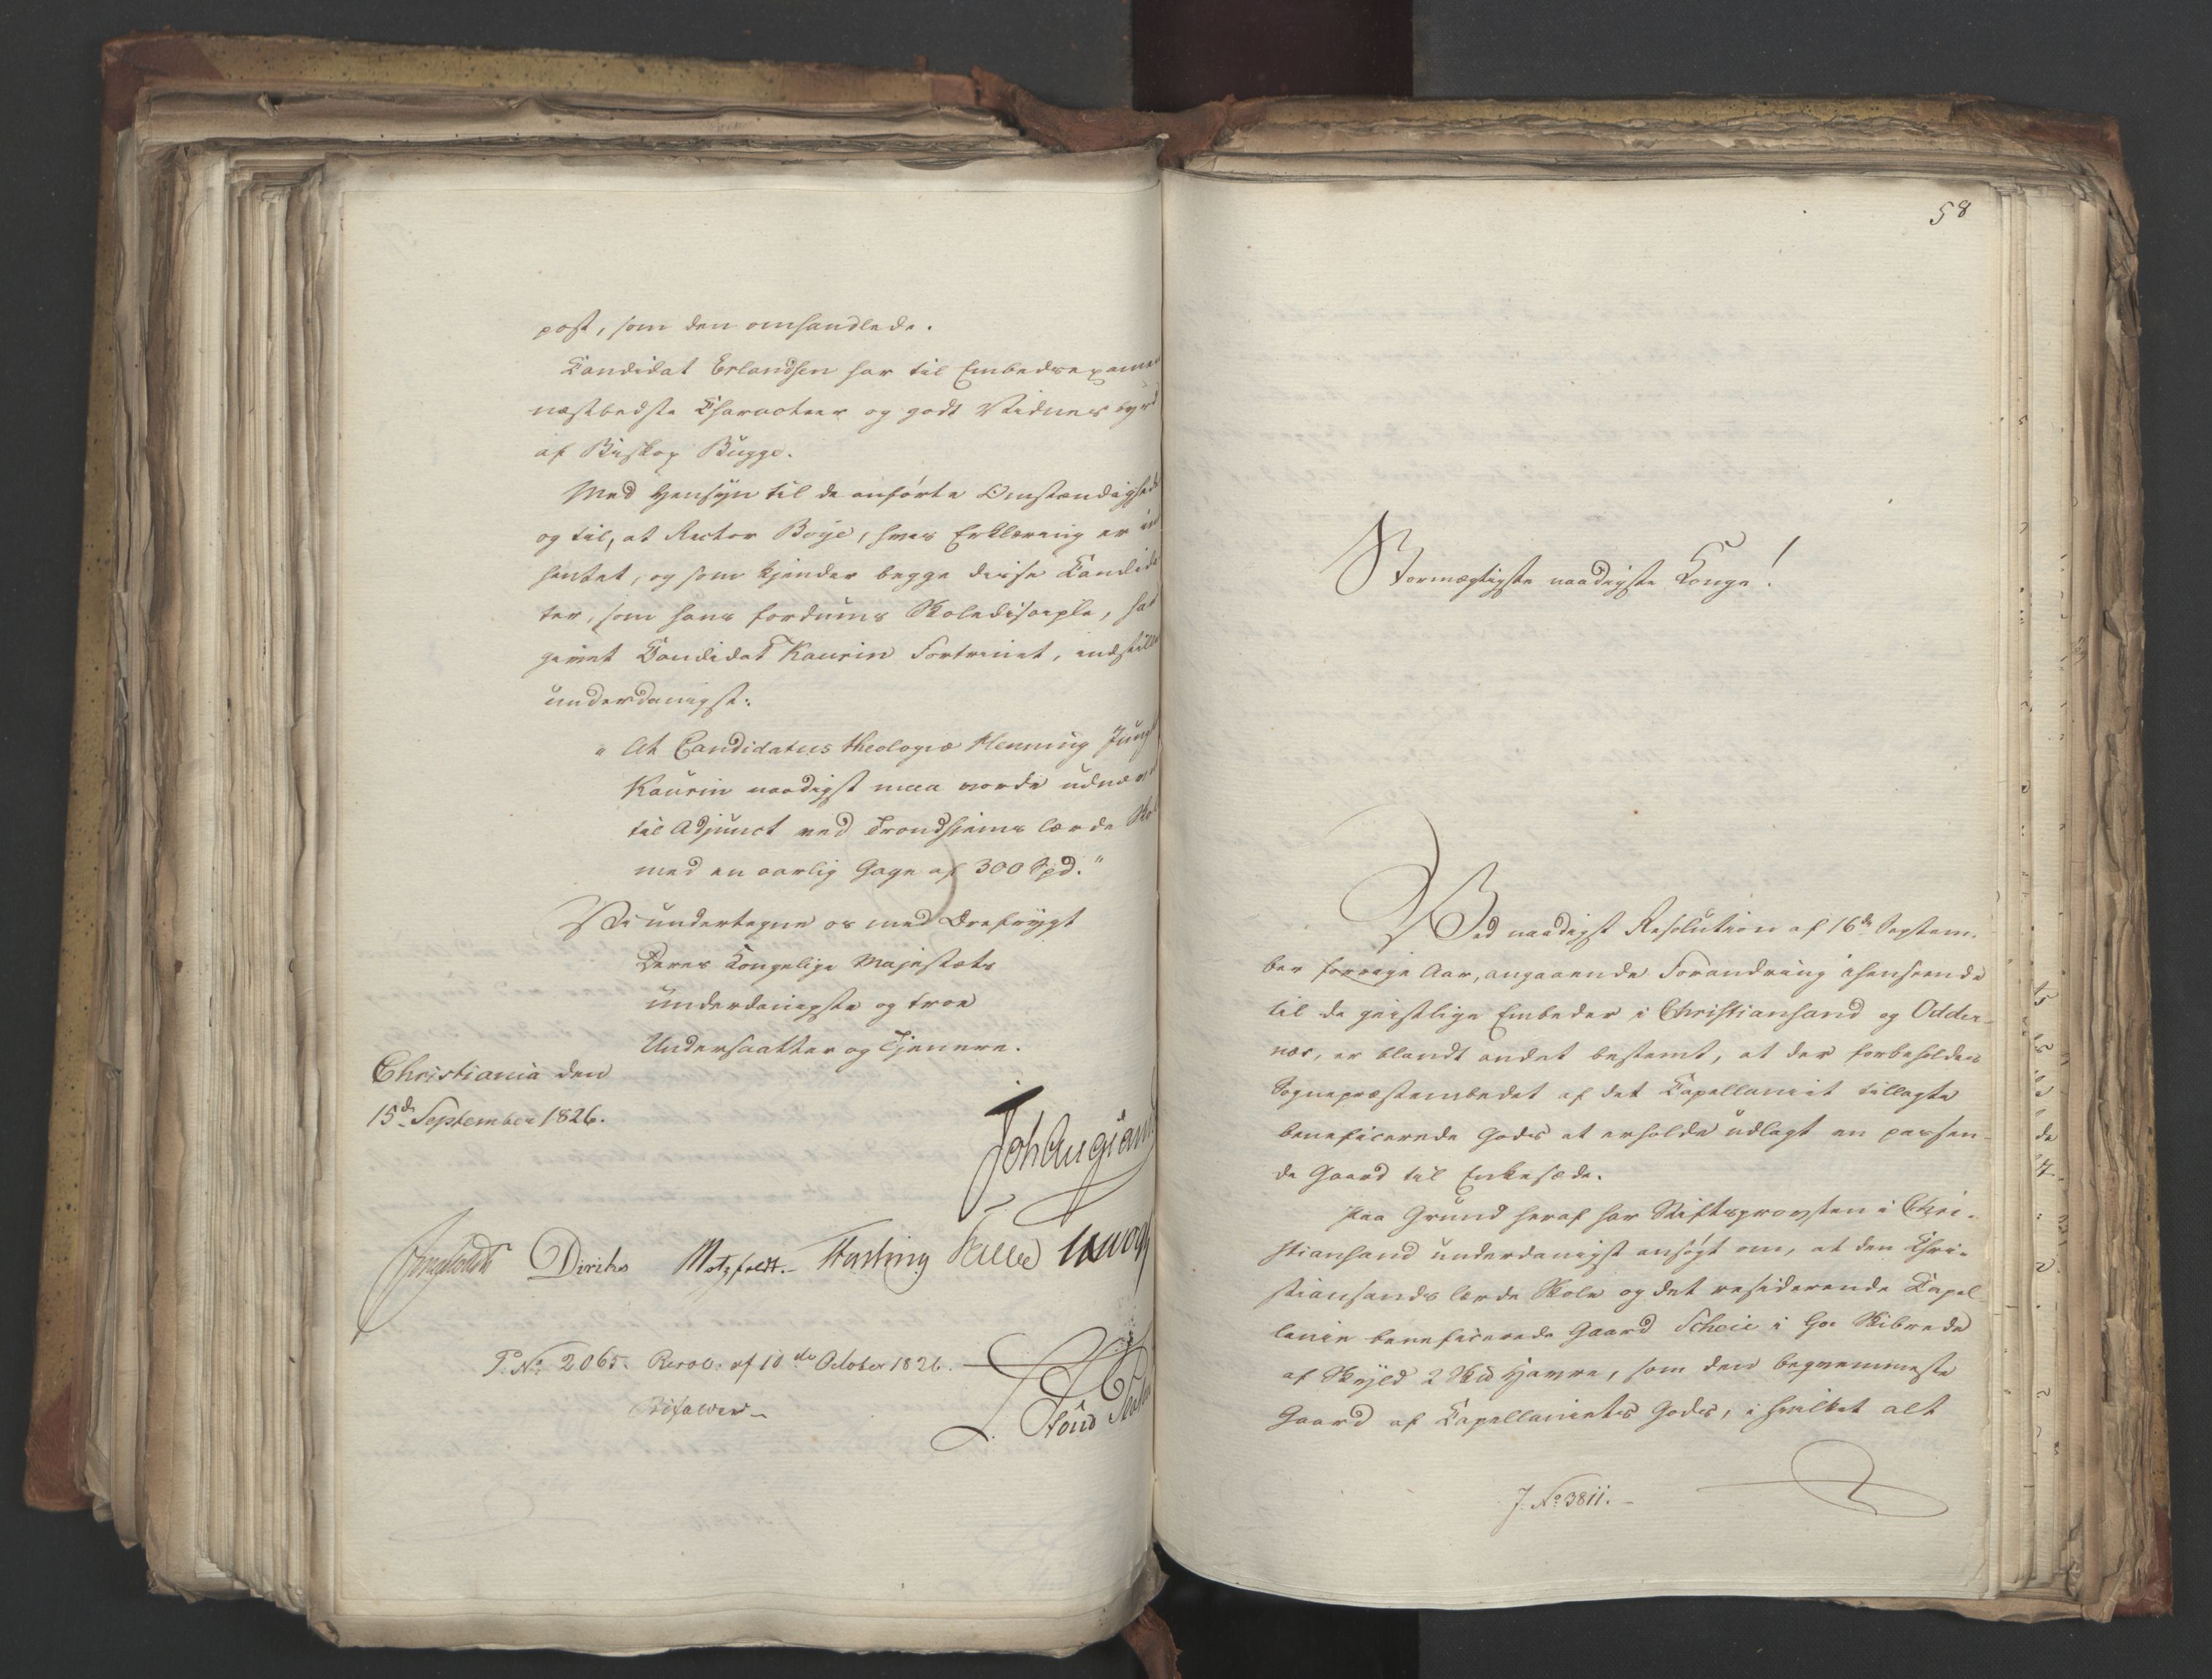 post, som den omhandlede.
Candidat Erlandsen har til Embedsexamen
næstbedste Charakteer og godt Vidnesbyrd
af Biskop Bugge.
Med Hensyn til de anførte Omstændighed
og til, at Rector Boye, hvis Erklæring er ind
hentet, og som kjender begge disse Candida
ter, som hans fordums Skoledisciple, har
givet Candidat Kaurin Fortrinet, indstilles
underdanigst:
"At Candidatus theologiæ Henning Jung
Kaurin naadigst maa vorde udnævnt
til Adjunct ved Trondhjems lærde Skole
med en aarlig Gage af 300 Spd."
Vi undertegne os med Ærefrygt
Deres Kongelige Majestæts
underdanigste og troe
Undersaatter og Tjenere.
Christiania den
15de September 1826.
Joh Aug Sand
Diriks Motzfeldt. Fasting
P. No. 2065. Resol: af 10de October 1826.
Bifalder
58
Stormægtigste naadigste Konge!
Ved naadigst Resolution af 16de Septem-
ber forrige Aar, angaaende Forandring i henseende
til de geistlige Embeder i Christiansand og Odder-
næs, er blandt andet bestemt, at der forbeholdes
Sognepræstembedet af det Capellaniet tillagte
beneficerede Gods at erholde udlagt en passen-
de Gaard til Enkesæde.
Paa Grund heraf har Stiftsprovsten i Chri-
stiansand underdanigst ansøgt om, at den Chri-
stiansands lærde Skole og det residerende Capel-
lanie beneficerede Gaard Scheie i Skibrede
af Skyld 2 Hd Havre, som den beqvemmeste
Gaard af Capellaniets Gods, i hvilket alt
J. No 3811.